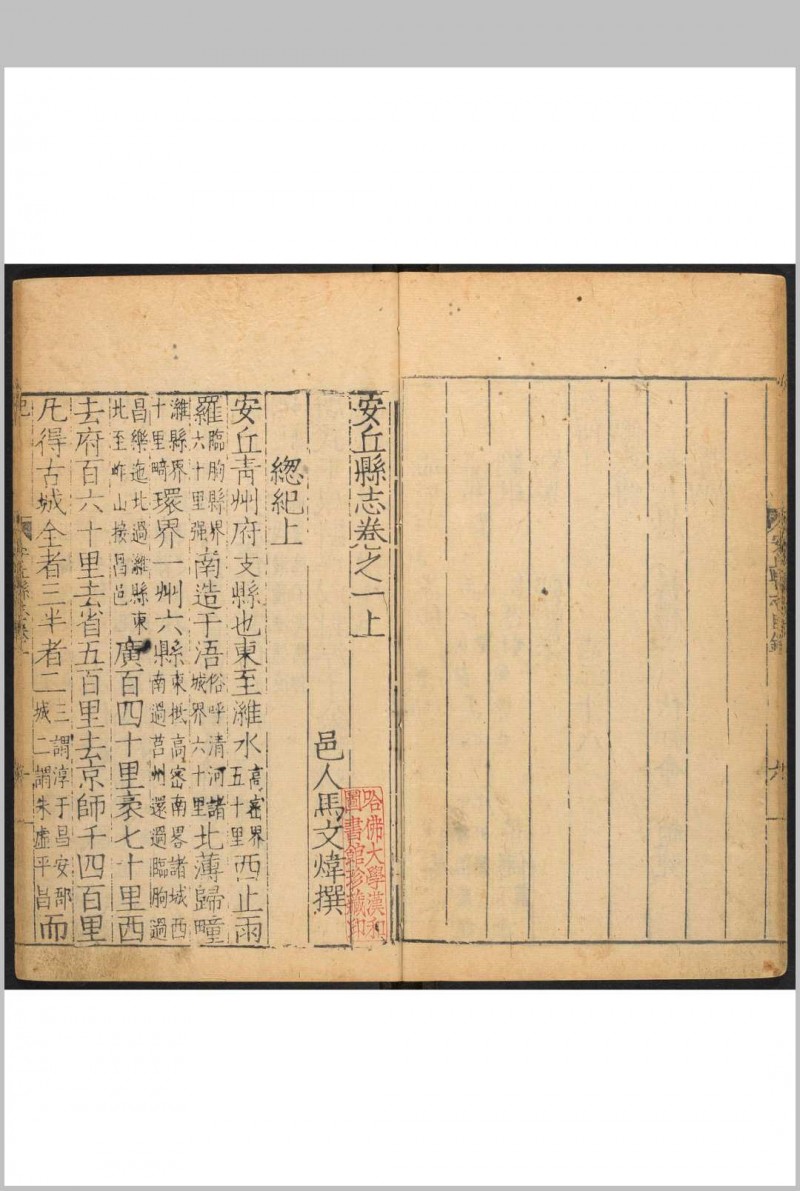 安丘縣志卷之一上
邑人馬文煒撰
哈佛大學漢和
圖書館珍藏印
總紀上
安丘青州府支縣也東至濰水高密界五十里西止雨
羅臨朐縣界六十里强南造于浯俗呼清河諸城界六十里北薄歸疃
濰縣界十里畸環界一州六縣東抵高密南畧諸城西南過莒州還過臨朐過
昌樂迤北過濰縣東北至岞山接昌邑廣百四十里袤七十里西
去府百六十里去省五百里去京師千四百里
凡得古城全者三半者二三謂淳于昌安郚城二謂朱虛平昌而